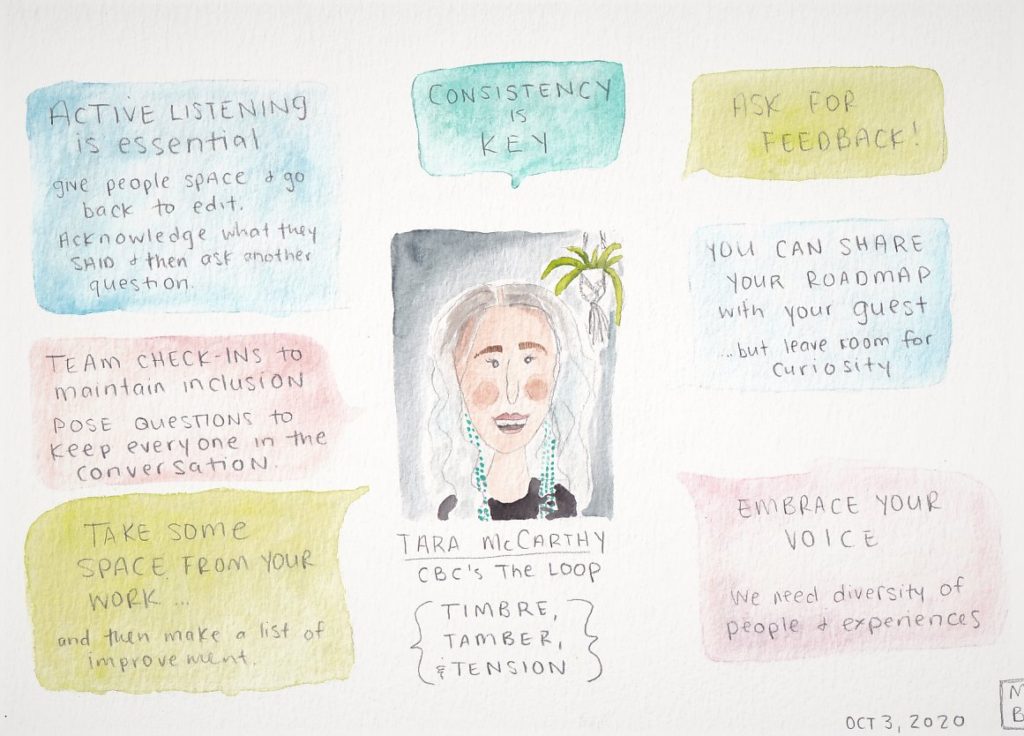 ACTIVE LISTENING
is essential
give people space & go
back to edit.
Acknowledge what they
SAID & then ask another
question.
TEAM CHECK-INS to
maintain inclusion
POSE QUESTIONS to
keep everyone in the
conversation.
TAKE SOME
SPACE FROM YOUR
WORK ...
and then make a list of
improvement.
CONSISTENCY
is
KEY
TARA McCARTHY
CBC's The LOOP
TIMBRE,
TAMBER,
& TENSION
ASK FOR
FEEDBACK!
YOU CAN SHARE
YOUR ROADMAP
with your guest
...but leave room for
curiosity
EMBRACE YOUR
VOICE
We need diversity of
people & experiences
OCT 3, 2020